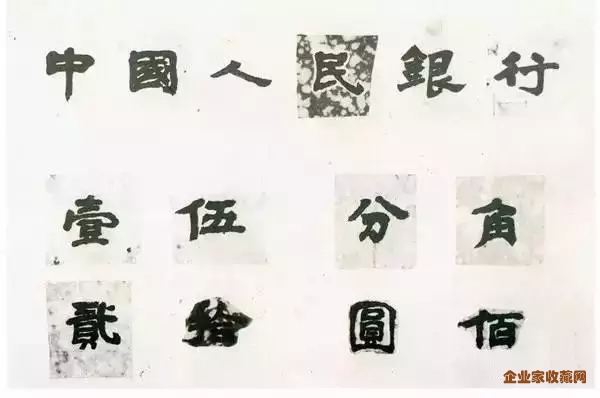 中國人民銀行
壹伍分角
貳拾圓佰
企业家收藏网